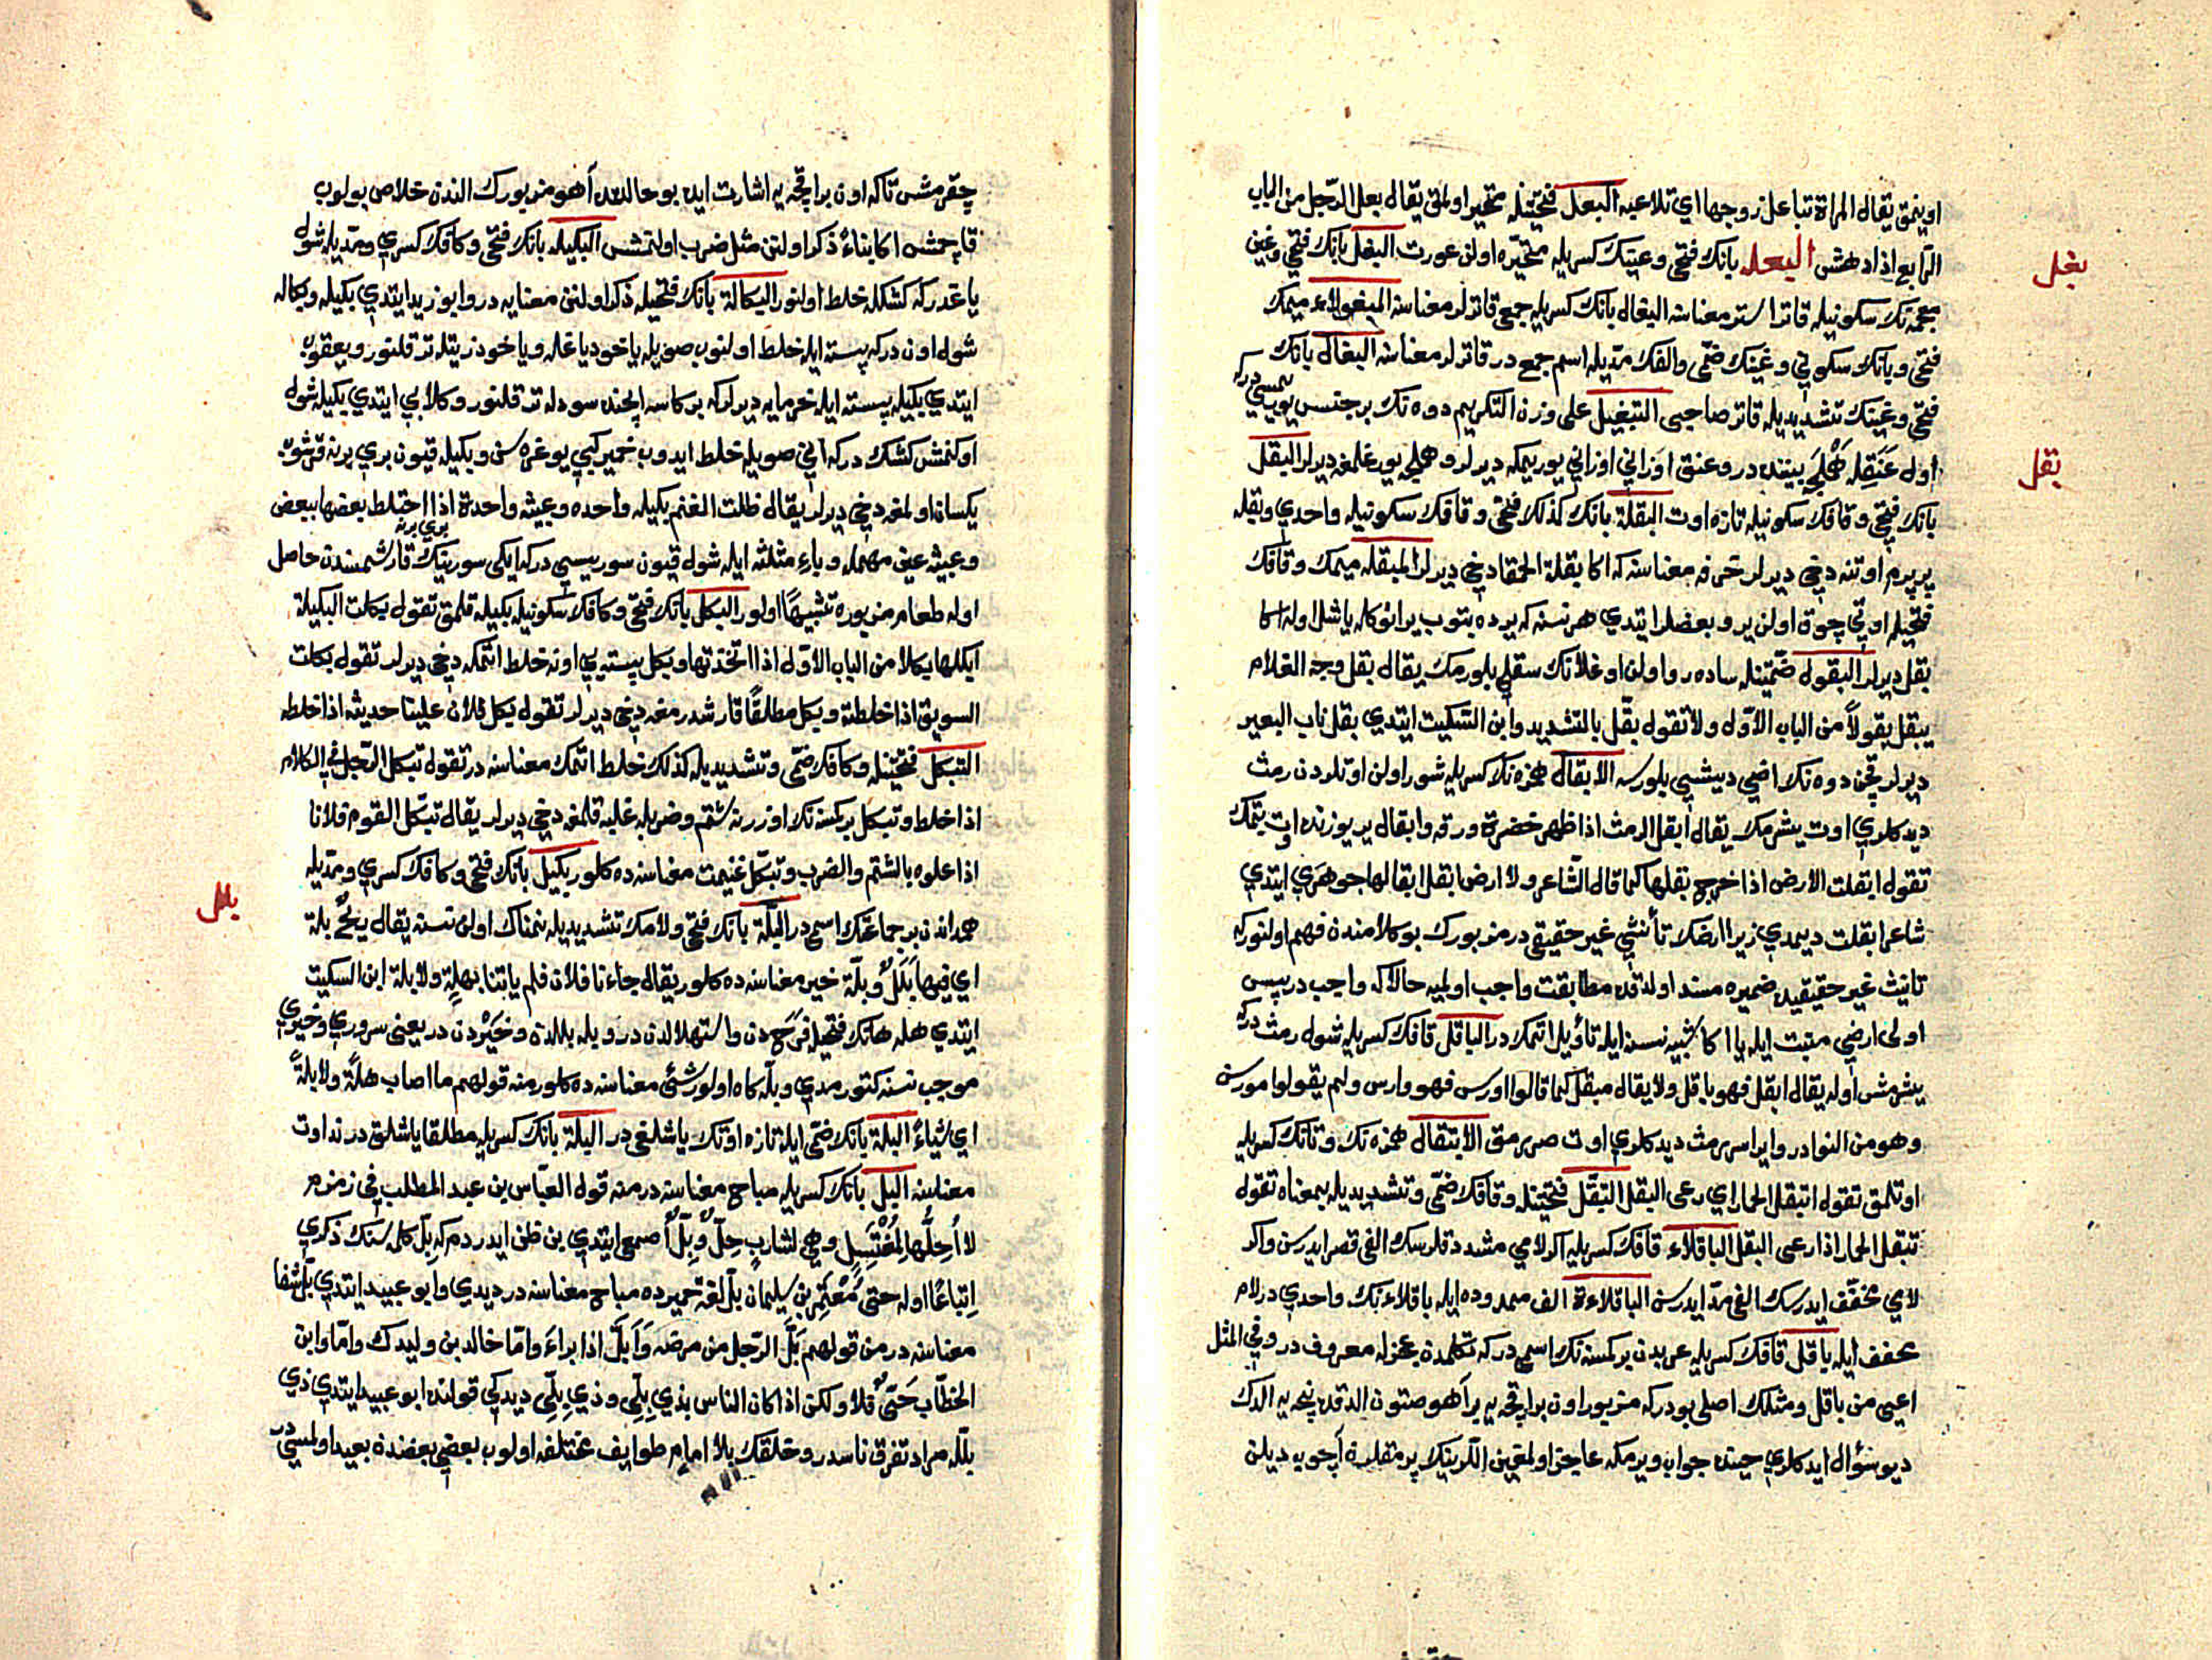 اوينمق يقال المراة تباعل زوجها اي تلاعبه البعل فتحتينله متحير اولمق يقال بعل الرجل من الباب
الرابع اذا دهش البعله بانك فتحى وعينك كسريله متحيره اولن عورت البغل بانك فتحى وغين
بغل
معجمه نك سكونيله قاتر استر معناسنه البغال بانك كسريله جمعى قاترلر معناسنه المبغولاء ميمك
فتحى وبانك سكونى وغينك ضمى والفك مديله اسم جمع در قاترلر معناسنه البغال بانك
فتحى وغينك تشديديله قاتر صاحبى التبغيل على وزن التكريم دوه نك بر جنس يوريسى در كه
اول عنقله هملجى بيننده در وعنق اوزانى اوزانى يوريمكه ديرلر وهملجى يورغلمغه ديرلر البقل
بقل
بانك فتحى وقافك سكونيله تازه اوت البقلة بانك كذلك فتحى وقافك سكونيله واحدى وبقله
پرپرم اوتنه دخى ديرلر خرفه معناسنه كه اكا بقلة الحمقا دخى ديرلر المبقله ميمك وقافك
فتحيله اوتى چوق اولن ير وبعضلر ايتدى هر نسنه كه يرده بتوب يرانوكاله ياشل اوله اكا
بقل ديرلر البقول ضمتينله ساده رو اولن اوغلانك سقلى بلورمك يقال بقل وجه الغلام
يبقل بقولاً من الباب الاول ولا تقول بقّل بالتشديد وابن السكيت ايتدى بقل ناب البعير
ديرلر قچن دوه نك اضى ديشى بلورسه الابقال همزه نك كسريله شور اولن اوتلردن رمث
ديدكلرى اوت يشرمك يقال ابقل الرمث اذا ظهر خضرة ورقه وابقال ير يوزنده اوت بتمك
تقول ابقلت الارض اذا خرج بقلها كما قال الشاعر ولا ارض ابقل ابقالها جوهرى ايتدى
شاعر ابقلت ديمدى زيرا ارضك تأنثى غير حقيقى در مزبورك بو كلامندن فهم اولنور كه
تانيث غير حقيقيده ضميره مسند اولدقده مطابقت واجب اولميه حالا كه واجب در پس
اولى ارضى منبت ايله يا اكا شبيه نسنه ايله تأويل اتمك در الباقل قافك كسريله شول رمث در كه
يشرمش اوله يقال ابقل فهو باقل ولا يقال مبقل كما قالوا اورس فهو وارس ولم يقولوا مورس
وهو من النوادر وايراس رمث ديدكلرى اوت صررمق الابتقال همزه نك وتانك كسريله
اوتلمق تقول ابتقل الحمار اى رعى البقل التبقّل فتحتينله وقافك ضمى وتشديديله بمعناه تقول
تبقل الحمار اذا رعى البقل الباقلاء قافك كسريله اكر لامى مشدد قلرسك الفى قصر ايدرسن واكر
لامى مخفف ايدرسك الفى مد ايدرسن الباقلاءة الف ممدوده ايله باقلاءنك واحدى در لام
مخفف ايله باقل قافك كسريله عربدن بر كسنه نك اسمى در كه تكلمدن عجزله معروف در وفى المثل
اعيى من باقل ومثلك اصلى بودر كه مزبور اون بر اقچه يه بر آهو صتون الدقده نيچه يه الدك
ديو سؤال ايدكلرى حينده جواب ويرمكه عاجز اولمغين اللرينك پرمقلرن آچوب ديلن
چقرمش تا كه اون بر اقچه يه اشارت ايده بو حالدن آهو مزبورك الندن خلاص بولوب
قاچمش اكا بناءً ذكر اولنن مثل ضرب اولنمش البكيله بانك فتحى وكافك كسرى ومديله شول
ياغدر كه كشكله خلط اولنور البكالة بانك فتحيله ذكر اولنن معنايه در وابو زيد ايتدى بكيله وبكاله
شول اوندر كه پسته ايله خلط اولنوب صويله ياخود ياغله وياخود زيتله تر قلنور ويعقوب
ايتدى بكيله پسته ايله خرمايه ديرلر كه بر كاسه ايچنده سودله تر قلنور وكلابى ايتدى بكيله شول
اوكنمش كشك در كه آنى صويله خلط ايدوب خمير كبى يوغره سن وبكيله قيون برى برنه قرشوب
يكسان اولمغه دخى ديرلر يقال ظلت الغنم بكيله واحده وعبيثه واحدة اذا اختلط بعضها ببعض
وعبيثه عين مهمله وياء مثلثه ايله شول قيون سوريسى در كه ايكى سورينك برى برنه قارشمسندن حاصل
اوله طعام مزبوره تشبيهًا اولور البكل بانك فتحى وكافك سكونيله بكيله قلمق تقول بكلت البكيلة
ابكلها بكلا من الباب الاول اذا اتخذتها وبكل پسته يى اونه خلط اتمكه دخى ديرلر تقول بكلت
السويق اذا خلطته وبكل مطلقًا قارشدرمغه دخى ديرلر تقول بكل فلان علينا حديثه اذا خلطه
التبكّل فتحتينله وكافك ضمى وتشديديله كذلك خلط اتمك معناسنه در تقول تبكل الرجل فى الكلام
اذا خلط وتبكل بر كسنه نك اوزرينه شتم وضربله غلبه قلمغه دخى ديرلر يقال تبكّل القوم فلانا
اذا علوه بالشتم والضرب وتبكّل غنيمت معناسنه ده كلور بكيل بانك فتحى وكافك كسرى ومديله
همداندن بر جماعتك اسمى در البلّة بانك فتحى ولامك تشديديله نمناك اولن نسنه يقال ريحٌ بلة
بلل
اى فيها بَلَلٌ وبلّة خير معناسنه ده كلور يقال جاءنا فلان فلم ياتنا بهلة ولا بلة ابن السكيت
ايتدى هله هانك فتحيله فَرَح دن واستهلالدن در وبله بللدن وخَيْردن در يعنى سرورى وخيرى
موجب نسنه كتورمدى وبلّه كاه اولور شئ معناسنه ده كلور منه قولهم ما اصاب هلّةً ولا بلةً
اى شياءً البلة بانك ضمى ايله تازه اوتك ياشلغى در البلة بانك كسريله مطلقا ياشلق در نداوت
معناسنه البلّ بانك كسريله مباح معناسنه در منه قول العباس بن عبد المطلب فى زمزم
لا أُحِلُّها لِمُغْتَسِلٍ وهى لشاربٍ حِلٌّ وبِلٌّ اصمعى ايتدى بن ظن ايدردم كه بِلّ كلمه سنك ذكرى
اِتباعًا اوله حتى مُعْتَمِر بن سليمان بلّ لغة حميرده مباح معناسنه در ديدى وابو عبيد ايتدى بلّ شفا
معناسنه در من قولهم بَلَّ الرجل من مرضه وَأبلّ اذا براءَ واما خالد بن وليدك واما وابن
الخطاب حَىٌّ فلا ولكن اذا كان الناس بذى بِلِّى وذى بِلّى ديدكى قولنده ابو عبيد ايتدى ذى
بلّله مراد تفرق ناسدر وخلقك بلا امام طوايف مختلفه اولوب بعضى بعضندن بعيد اولمسى در